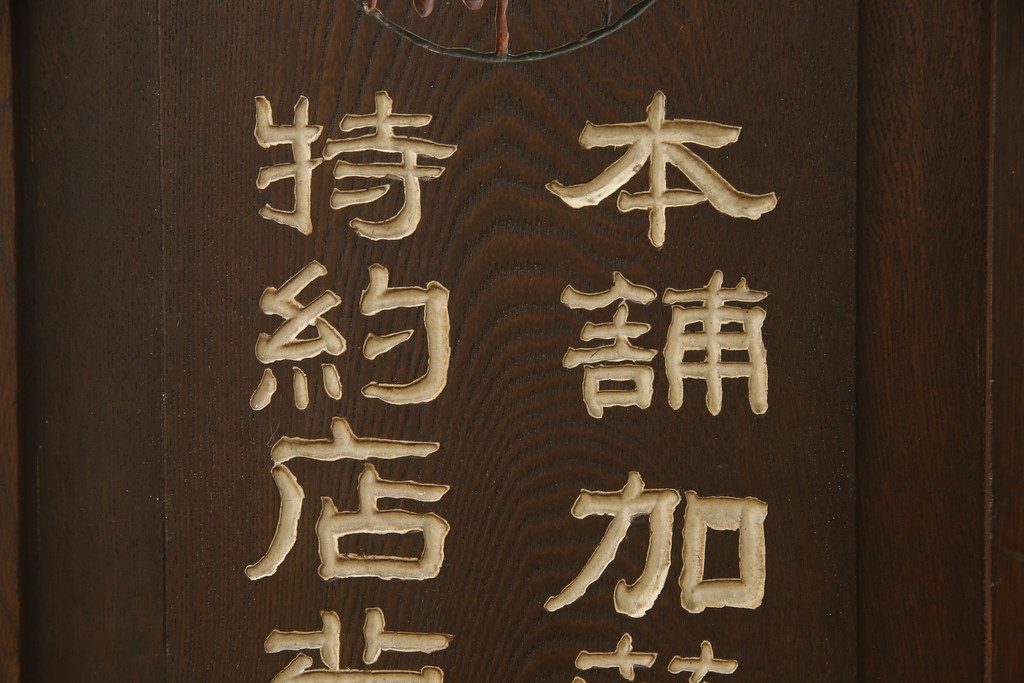 本舗加
特約店